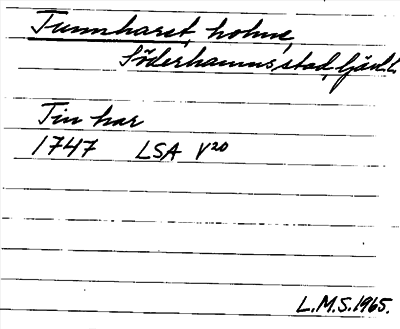 Tunnharst, holme,
Söderhamns stad, Gävl.l.
Tin har
1747 LSA V20
L.M.S. 1965.